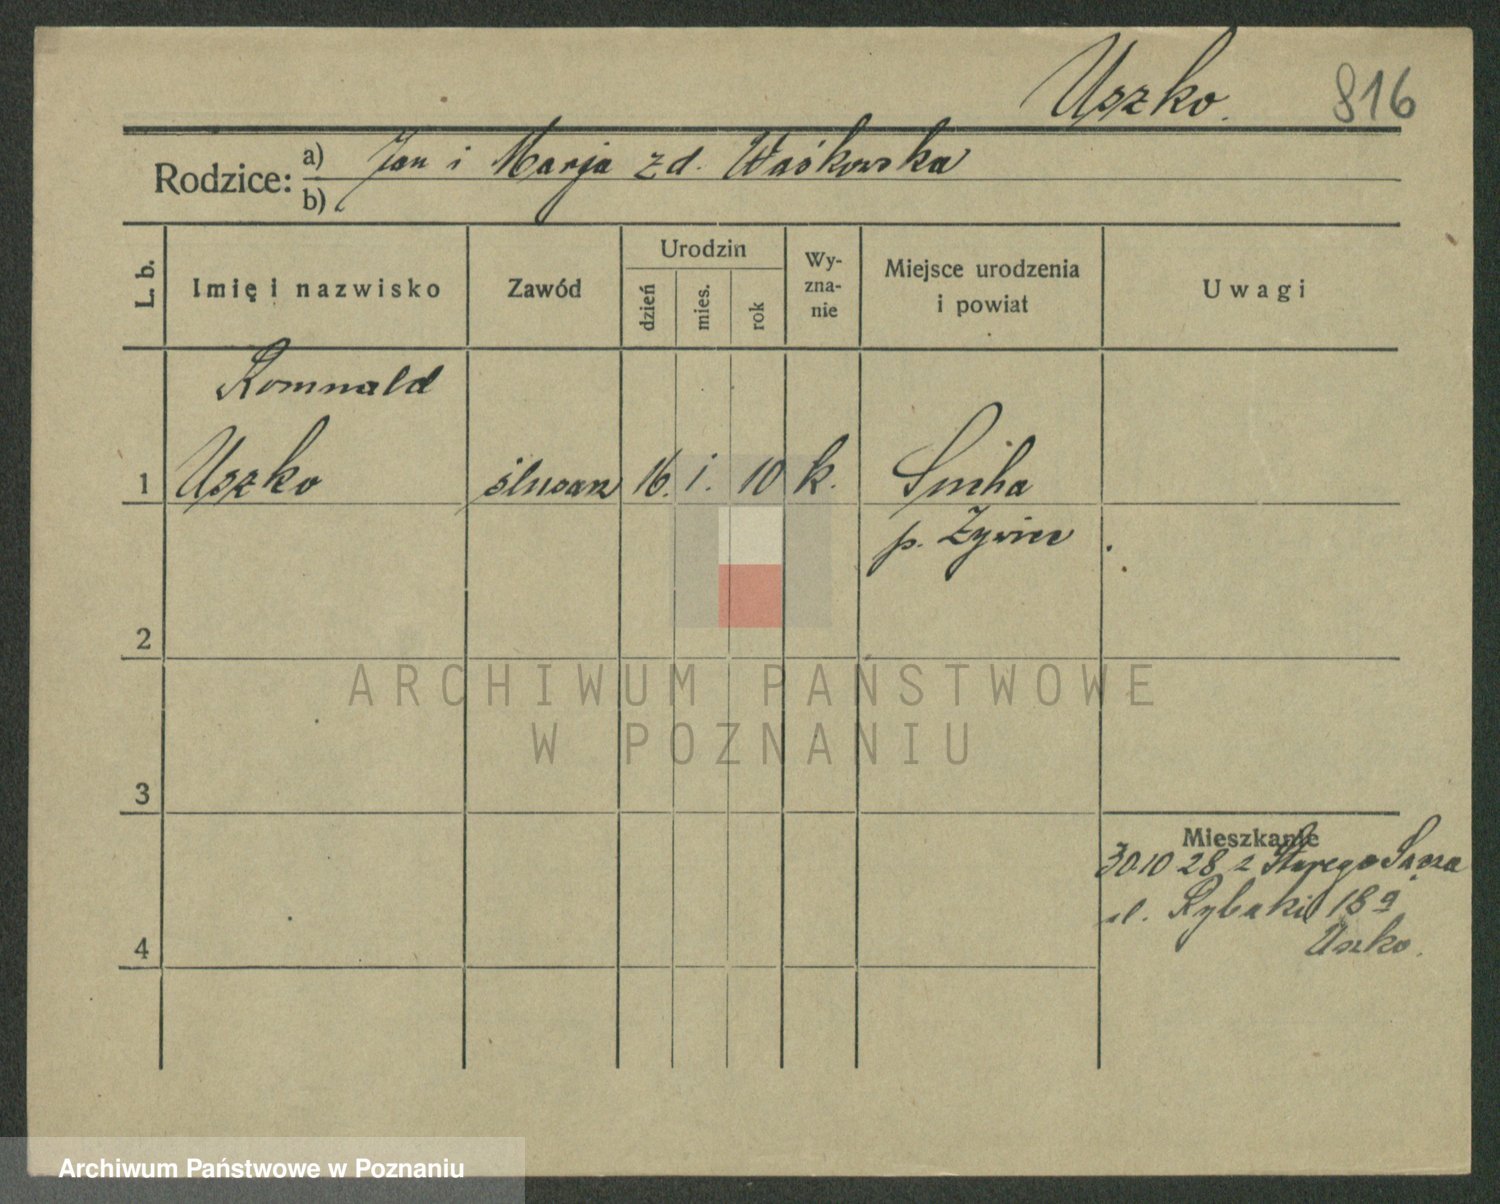 Uszko. 816
Rodzice: a) Jan i Marja zd. Waśkowska
b)
L. b. Imię i nazwisko Zawód Urodzin dzień mies. rok Wy-zna-nie Miejsce urodzenia i powiat Uwagi
Romuald
1 Uszko ślusarz 16. i. 10 k. Sucha
p. Żywiec
2
ARCHIWUM PAŃSTWOWE
W POZNANIU
3
Mieszkanie
30 10 28 z Starego Sącza
4 ul. Rybaki 18a
Uszko.
Archiwum Państwowe w Poznaniu